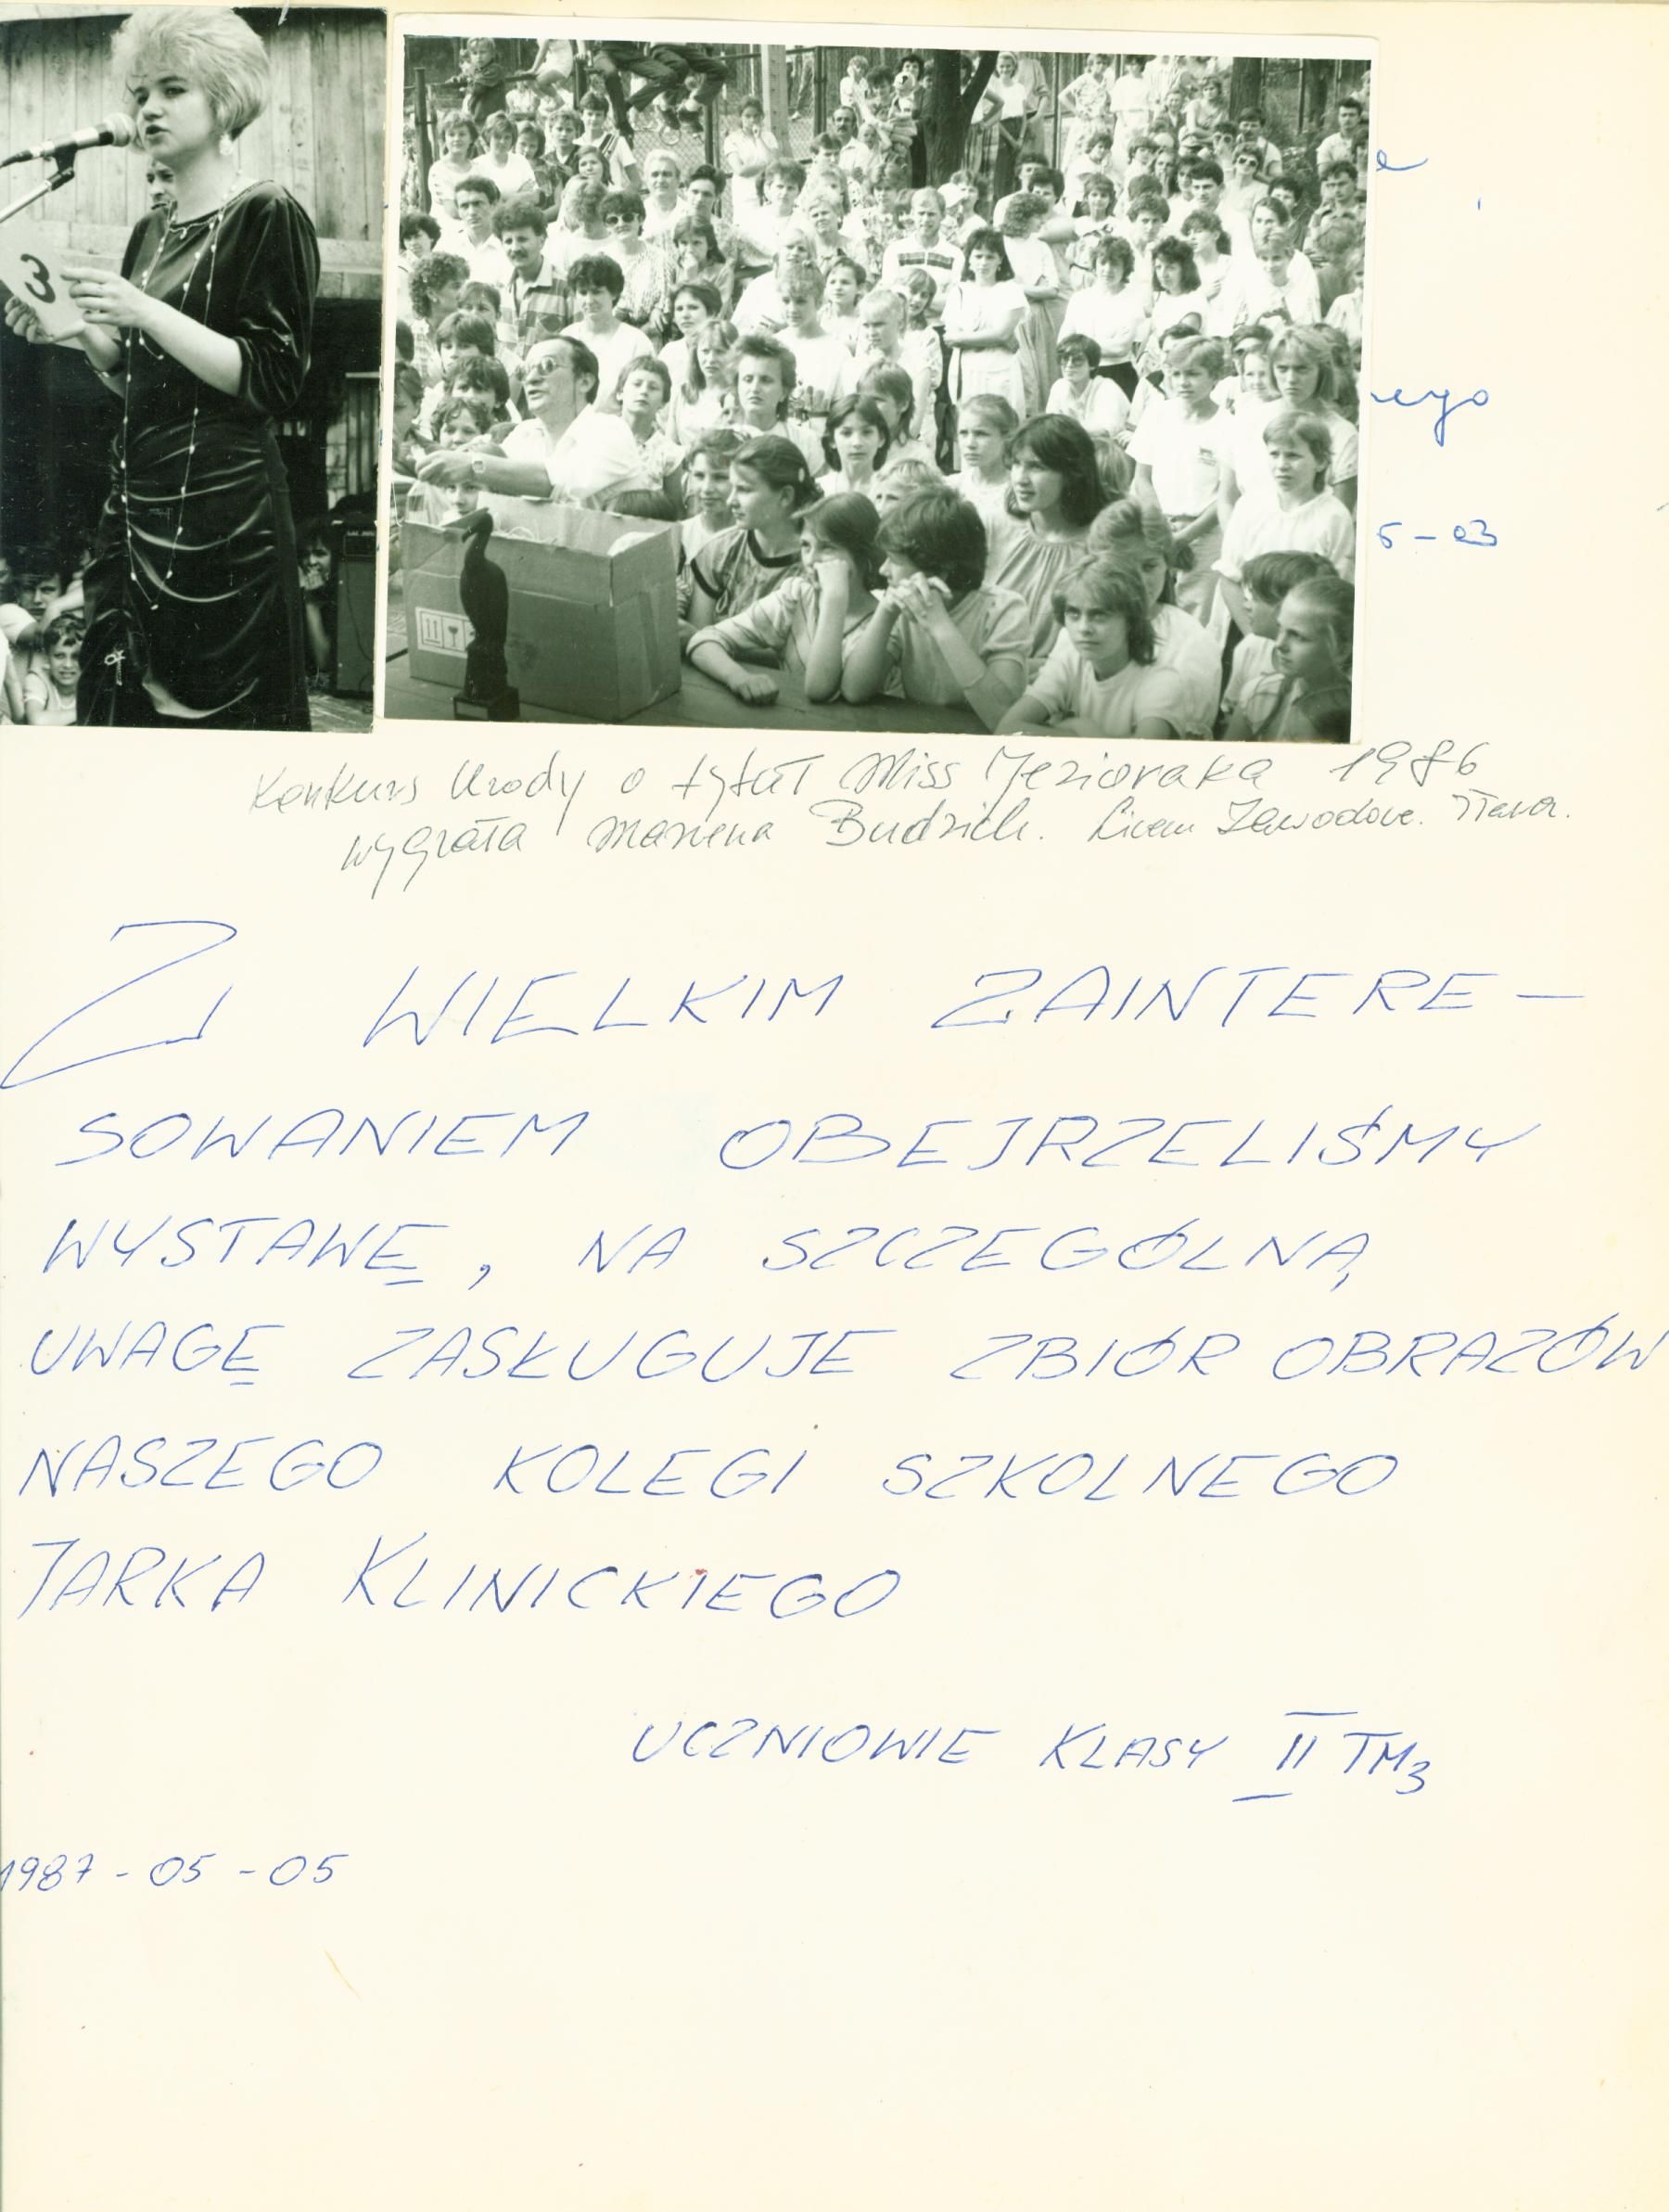 3
e
nego
5-03
Konkurs Urody o tytuł Miss Jezioraka 1986
wygrała Marzena Budzich. Liceum Zawodowe. Iława.
Z WIELKIM ZAINTERE-
SOWANIEM OBEJRZELIŚMY
WYSTAWĘ, NA SZCZEGÓLNĄ
UWAGĘ ZASŁUGUJE ZBIÓR OBRAZÓW
NASZEGO KOLEGI SZKOLNEGO
JARKA KLINICKIEGO
UCZNIOWIE KLASY II TM3
1987-05-05